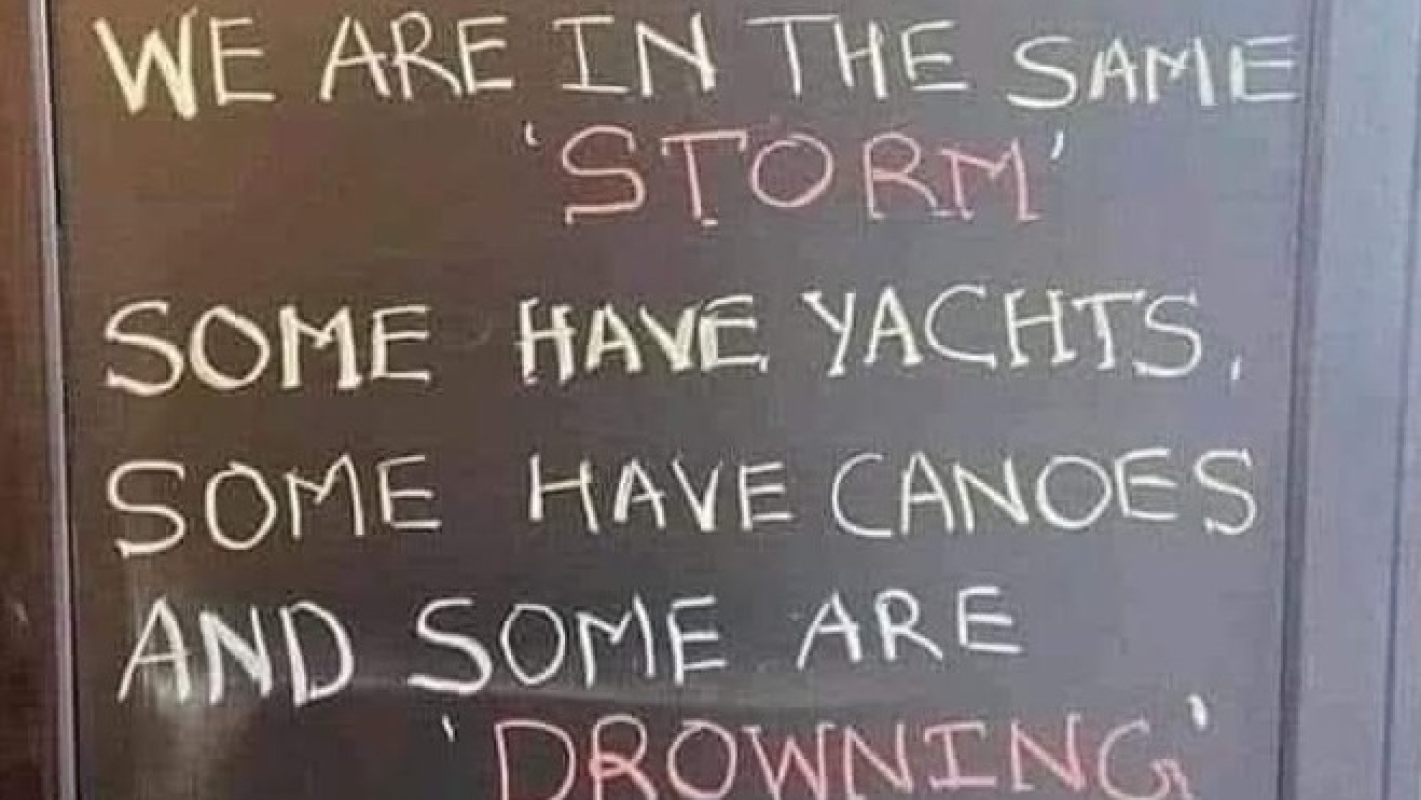 WE ARE IN THE SAME
'STORM'
SOME HAVE YACHTS,
SOME HAVE CANOES
AND SOME ARE
'DROWNING'